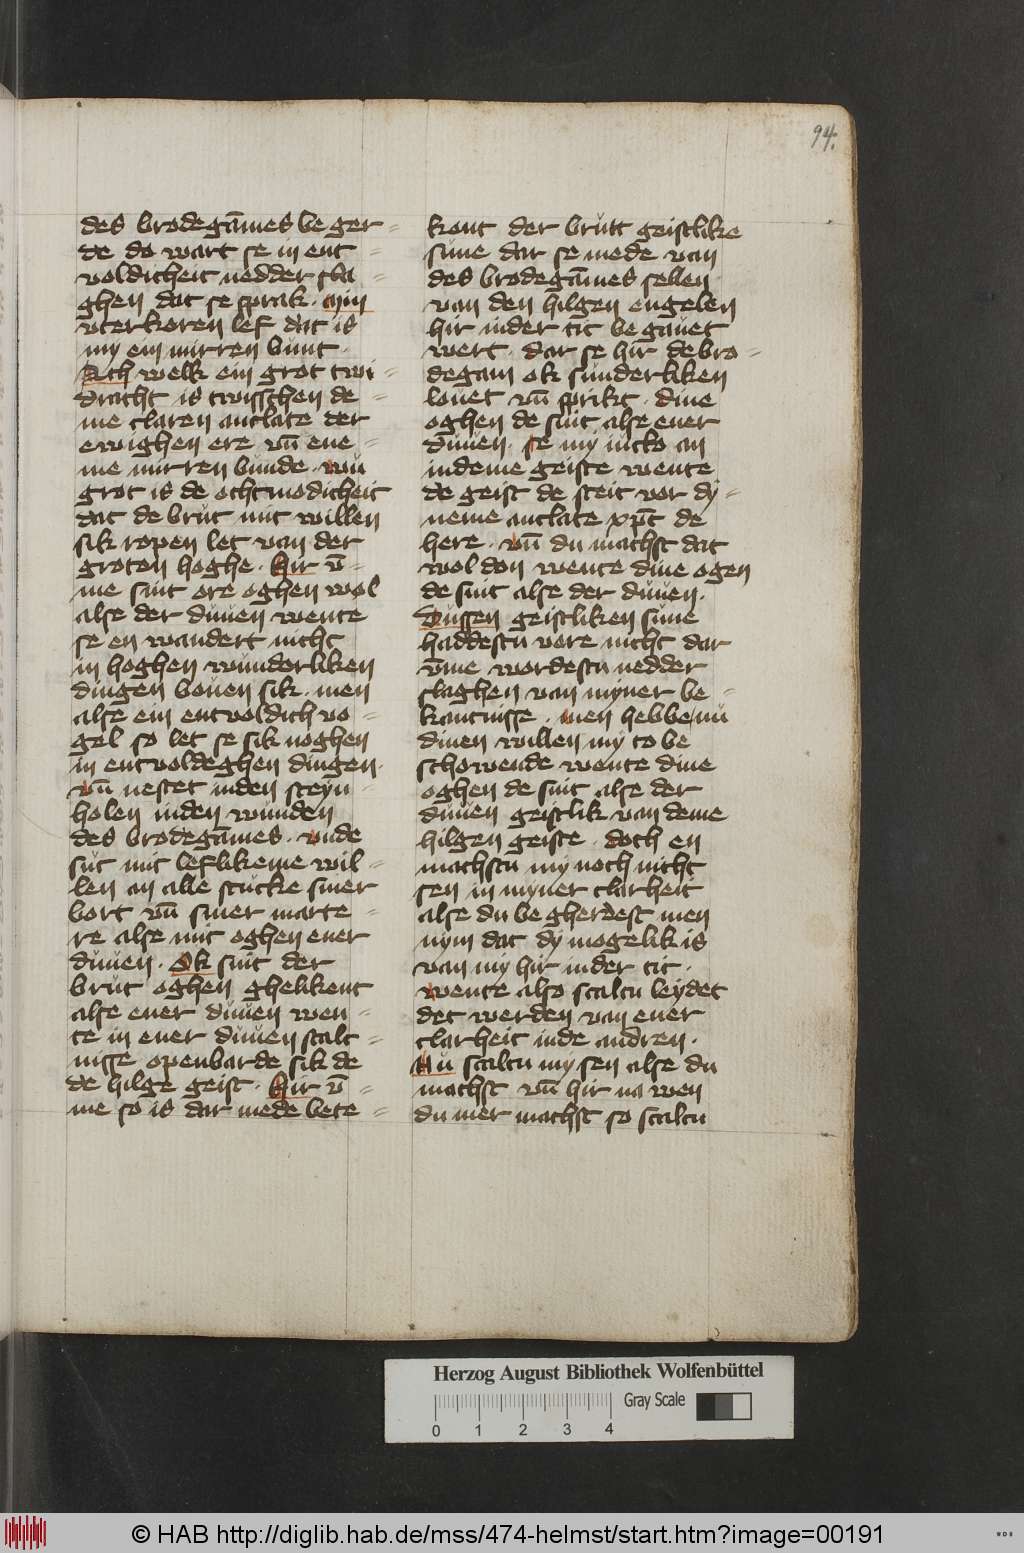 94.
des brodegāmes be ger-
de do wart se in ent-
voldicheit nedder sla-
ghen dat se sprak. Min
vterkoren lef dat is
my ein mirren bunt.
Ach welk ein grot twi-
dracht is twisschen de-
me claren antlate der
ewighen ere vn̄ ene-
me mirren bunde. wu
grot is de othmodicheit
dat de brut mit willen
sik ropen let van der
groten hoghe. Hir v̄-
me sint ore oghen wol
alse der duuen wente
se en wandert nicht
in hoghen wunderliken
dingen bouen sik. men
alse ein entvoldich vo-
gel so let se sik noghen
in entvoldeghen dingen.
vn̄ nestet inden steyn-
holen inden wunden
des brodegāmes. vnde
sut mit leflikeme wil-
len an alle stucke siner
bort vn̄ siner marte-
re alse mit oghen ener
duuen. Ok sint der
brut oghen ghelikent
alse ener duuen wen-
te in ener duuen stalt-
nisse openbarde sik de
de hilge geist. Hir v̄-
me so is dar mede bete-
kent der brutt geistlike
sune dar se mede van
des brodegāmes sellen
van den hilgen engelen
hir inder tit be gauet
wert. dar se hir de bro-
degam ok sunderliken
louet vn̄ sprikt. dine
oghen de sint alse ener
duuen. se my nicht an
indeme geiste wente
de geist de steit vor dy-
neme antlate xp̄c de
here. vn̄ du machst dat
wol don wente dine ogen
de sint alse der duuen.
Dussen geistliken sune
haddestu vore nicht dar
v̄me wordestu nedder
slaghen van myner be-
kantnisse. men hebbe nu
dinen willen my to be
schowende wente dine
oghen de sint alse der
duuen geistlik van deme
hilgen geiste. doch en
machstu my noch nicht
sen in myner clarheit
alse du be gherdest men
nym dat dy mogelik is
van my hir inder tit.
wente also scaltu leydet
det werden van ener
clarheit inde andren.
Nu scaltu my sen alse du
machst vn̄ hir na wen
du mer machst so scaltu
Herzog August Bibliothek Wolfenbüttel
Gray Scale
0 1 2 3 4
© HAB http://diglib.hab.de/mss/474-helmst/start.htm?image=00191